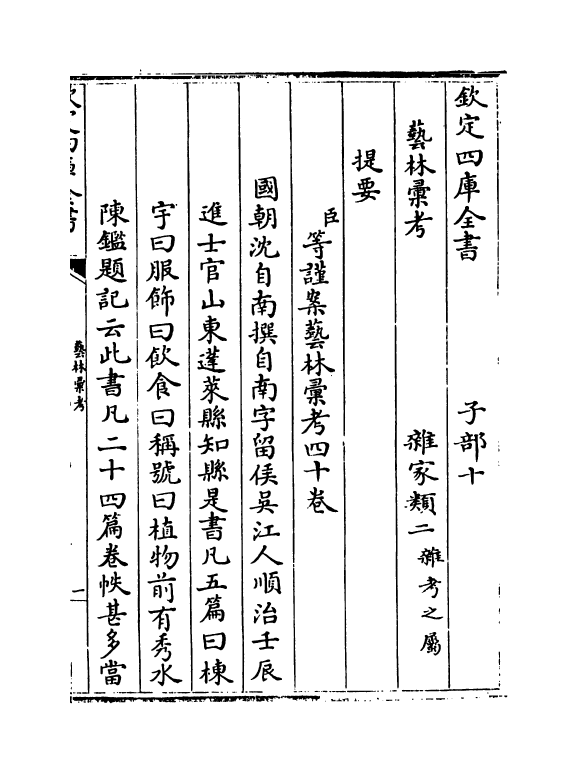 欽定四庫全書　子部十
藝林彙考　雜家類二雜考之屬
提要
臣等謹案藝林彙考四十卷
國朝沈自南撰自南字留侯吳江人順治壬辰
進士官山東蓬萊縣知縣是書凡五篇曰棟
宇曰服飾曰飲食曰稱號曰植物前有秀水
陳鑑題記云此書凡二十四篇卷帙甚多當
藝林彙考